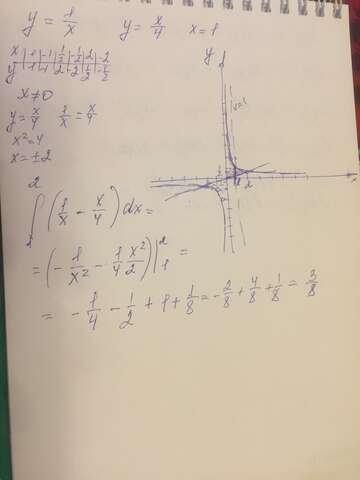 y = 1/x    y = x/4    x = 1
x | 1 | -1 | 1/2 | -1/2 | 2 | -2
y | 1 | -1 | 2 | -2 | 1/2 | -1/2
x ≠ 0
y = x/4    1/x = x/4
x² = 4
x = ±2
∫₁² (1/x - x/4) dx =
= (-1/x² - 1/4 · x²/2) |₁² =
= -1/4 - 1/2 + 1 + 1/8 = -2/8 + 4/8 + 1/8 = 3/8
y
x=1
x